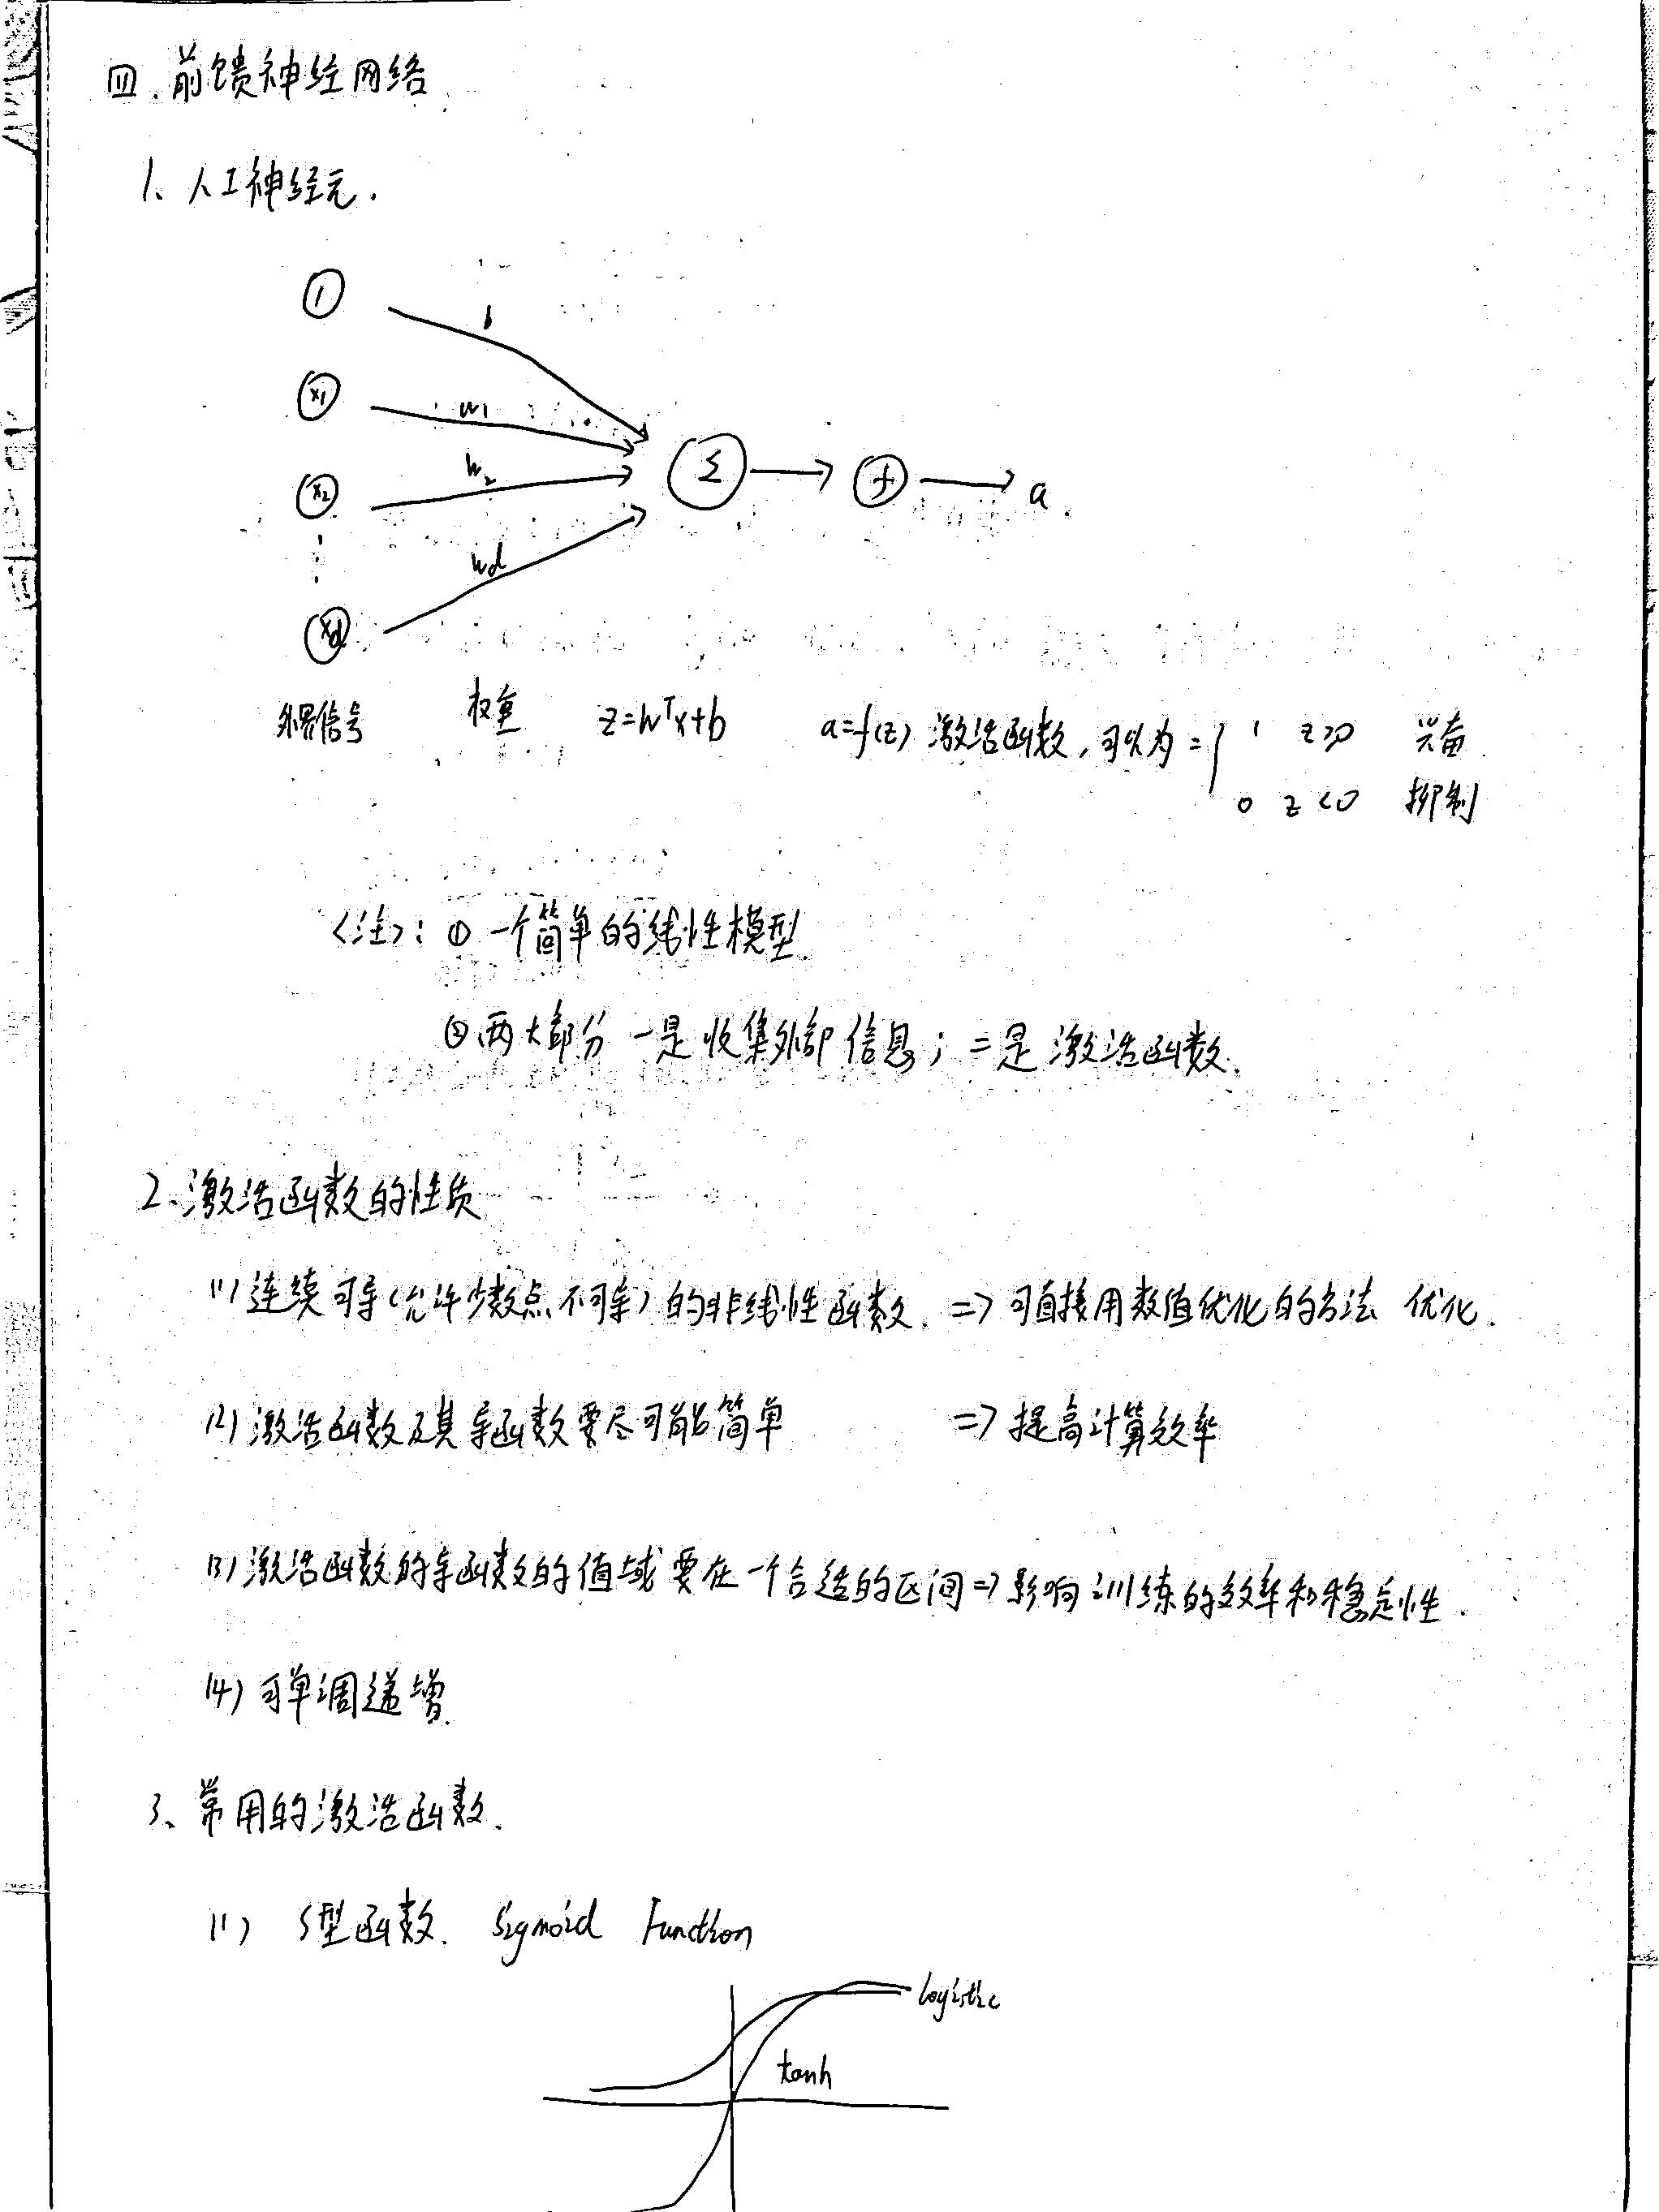 四. 前馈神经网络.
1、人工神经元.
1
b
x1
w1
x2
w2
Σ
f
a
wd
xd
外界信号 权重 z=wᵀx+b a=f(z) 激活函数,可以为={ 1 z>0 兴奋
0 z<0 抑制
<注>: ① 一个简单的线性模型.
②两大部分 一是收集外部信息; 二是激活函数.
2、激活函数的性质
(1) 连续可导(允许少数点不可导)的非线性函数. => 可直接用数值优化的方法 优化.
(2) 激活函数及其导函数要尽可能简单 => 提高计算效率
(3) 激活函数的导函数的值域要在一个合适的区间=>影响训练的效率和稳定性.
(4) 可单调递增.
3、常用的激活函数.
(1) S型函数. Sigmoid Function
logistic
tanh